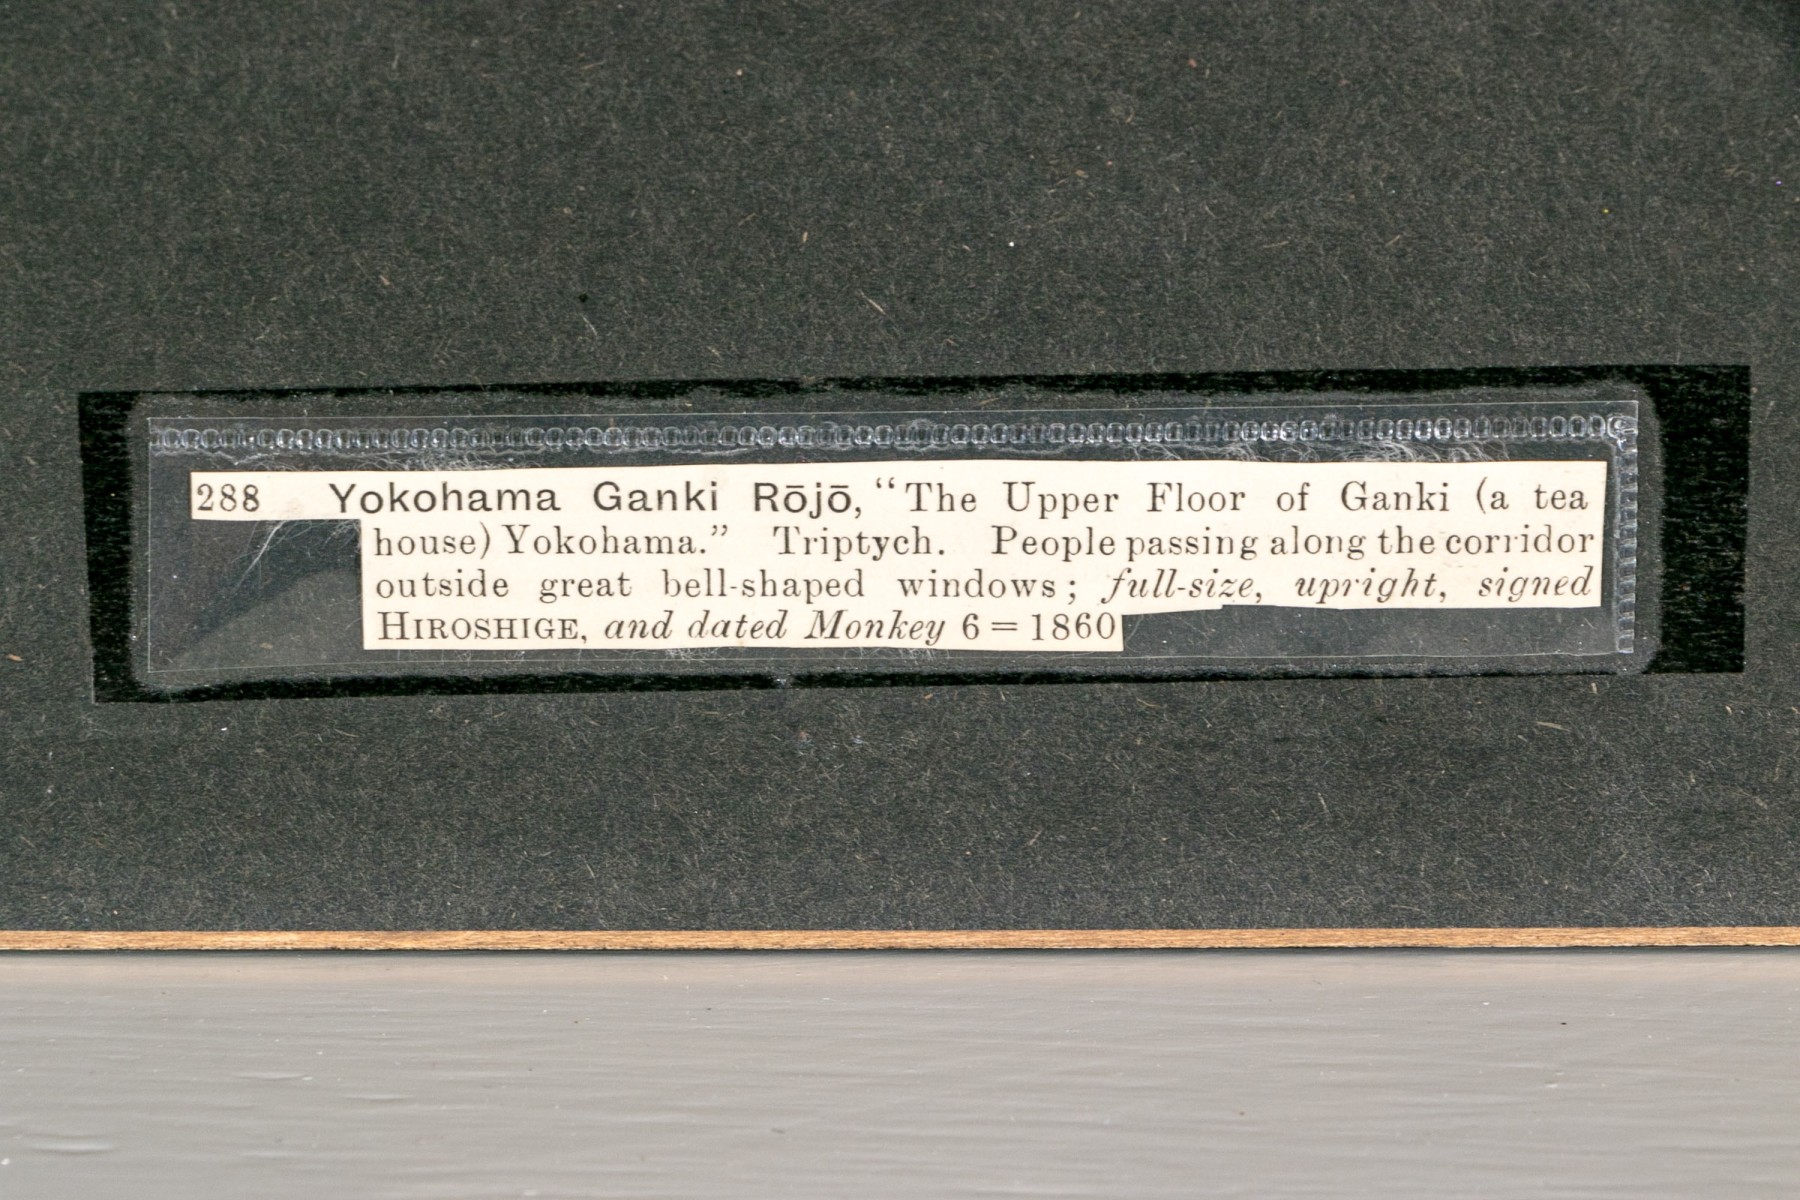 288 Yokohama Ganki Rōjō, “The Upper Floor of Ganki (a tea
house) Yokohama.” Triptych. People passing along the corridor
outside great bell-shaped windows; full-size, upright, signed
HIROSHIGE, and dated Monkey 6 = 1860